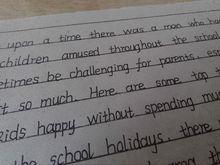 upon a time there was a man who
children amused throughout the school
etimes be challenging for parents, esp
t so much. Here are some top t
kids happy without spending mu
the school holidays, there